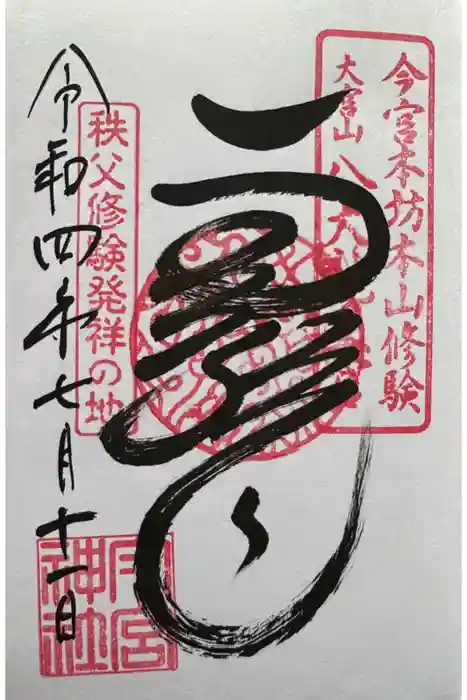 今宮本坊本山修験
大宮山八大
令和四年七月十一日
秩父修験発祥の地
今宮神社